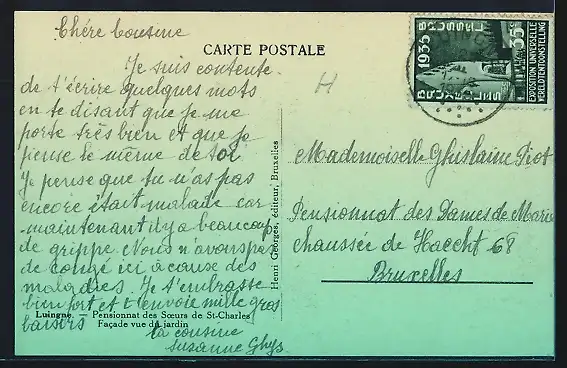 Chére Cousine
CARTE POSTALE
Je suis contente
de t'écrire quelques mots
en te disant que je me
porte très bien et que je
pense le même de toi
Je pense que tu n'as pas
encore était malade car
maintenant il y a beaucoup
de grippe. Nous n'avons pas
de congé ici à cause des
maladies. Je t'embrasse
bien fort et t'envoie mille gros
baisers
ta cousine
Suzanne Ghys
Luingne. — Pensionnat des Sœurs de St-Charles
Façade vue du jardin
Henri Georges, éditeur, Bruxelles
H
1935
35c
EXPOSITION UNIVERSELLE
WERELDTENTOONSTELLING
Mademoiselle Ghislaine Piot
Pensionnat des Dames de Marie
chaussée de Haecht 68
Bruxelles